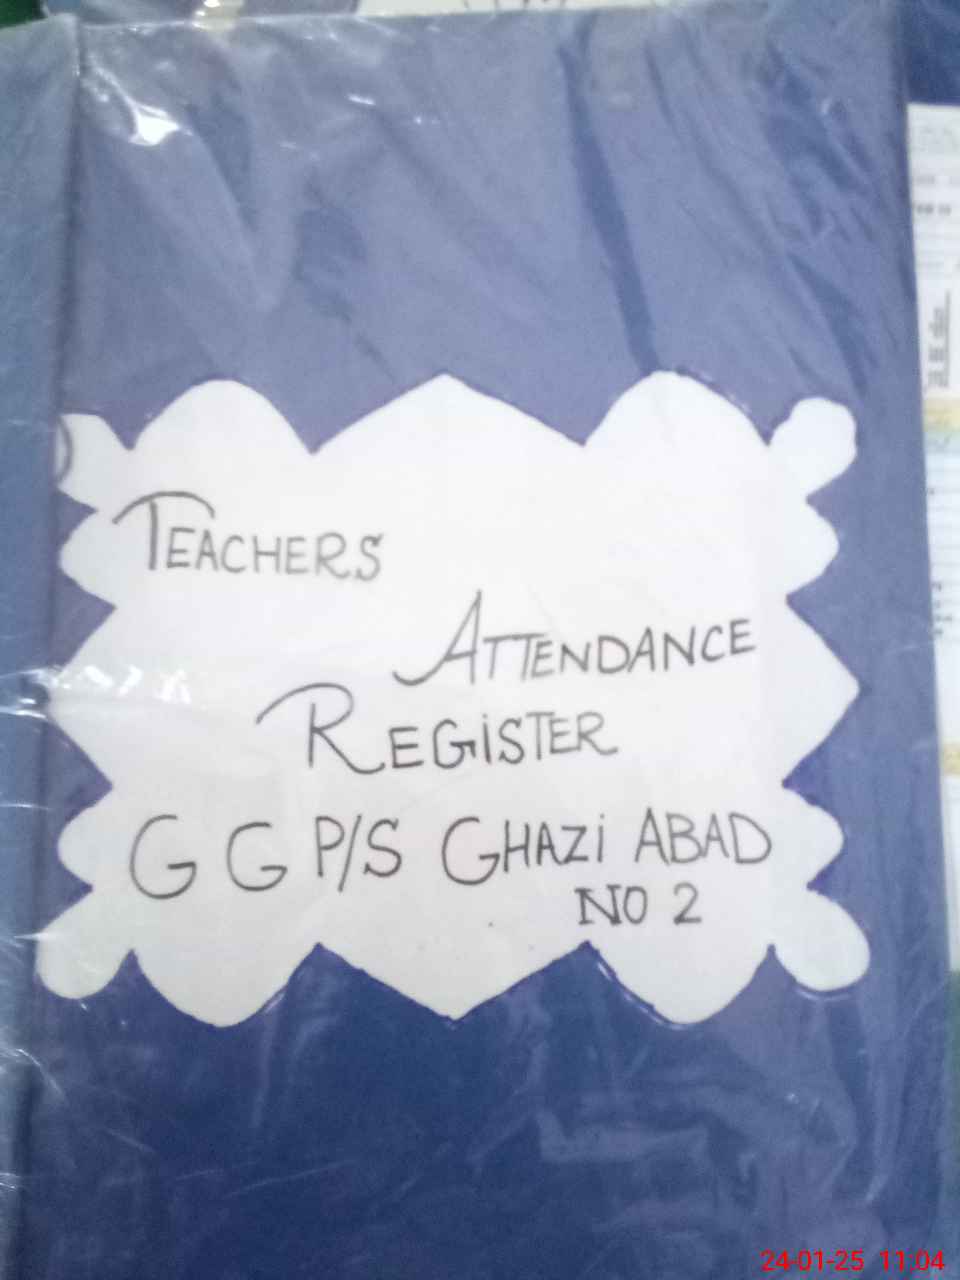 TEACHERS
ATTENDANCE
REGiSTER
G G P/S GHAZi ABAD
NO 2
24-01-25 11:04